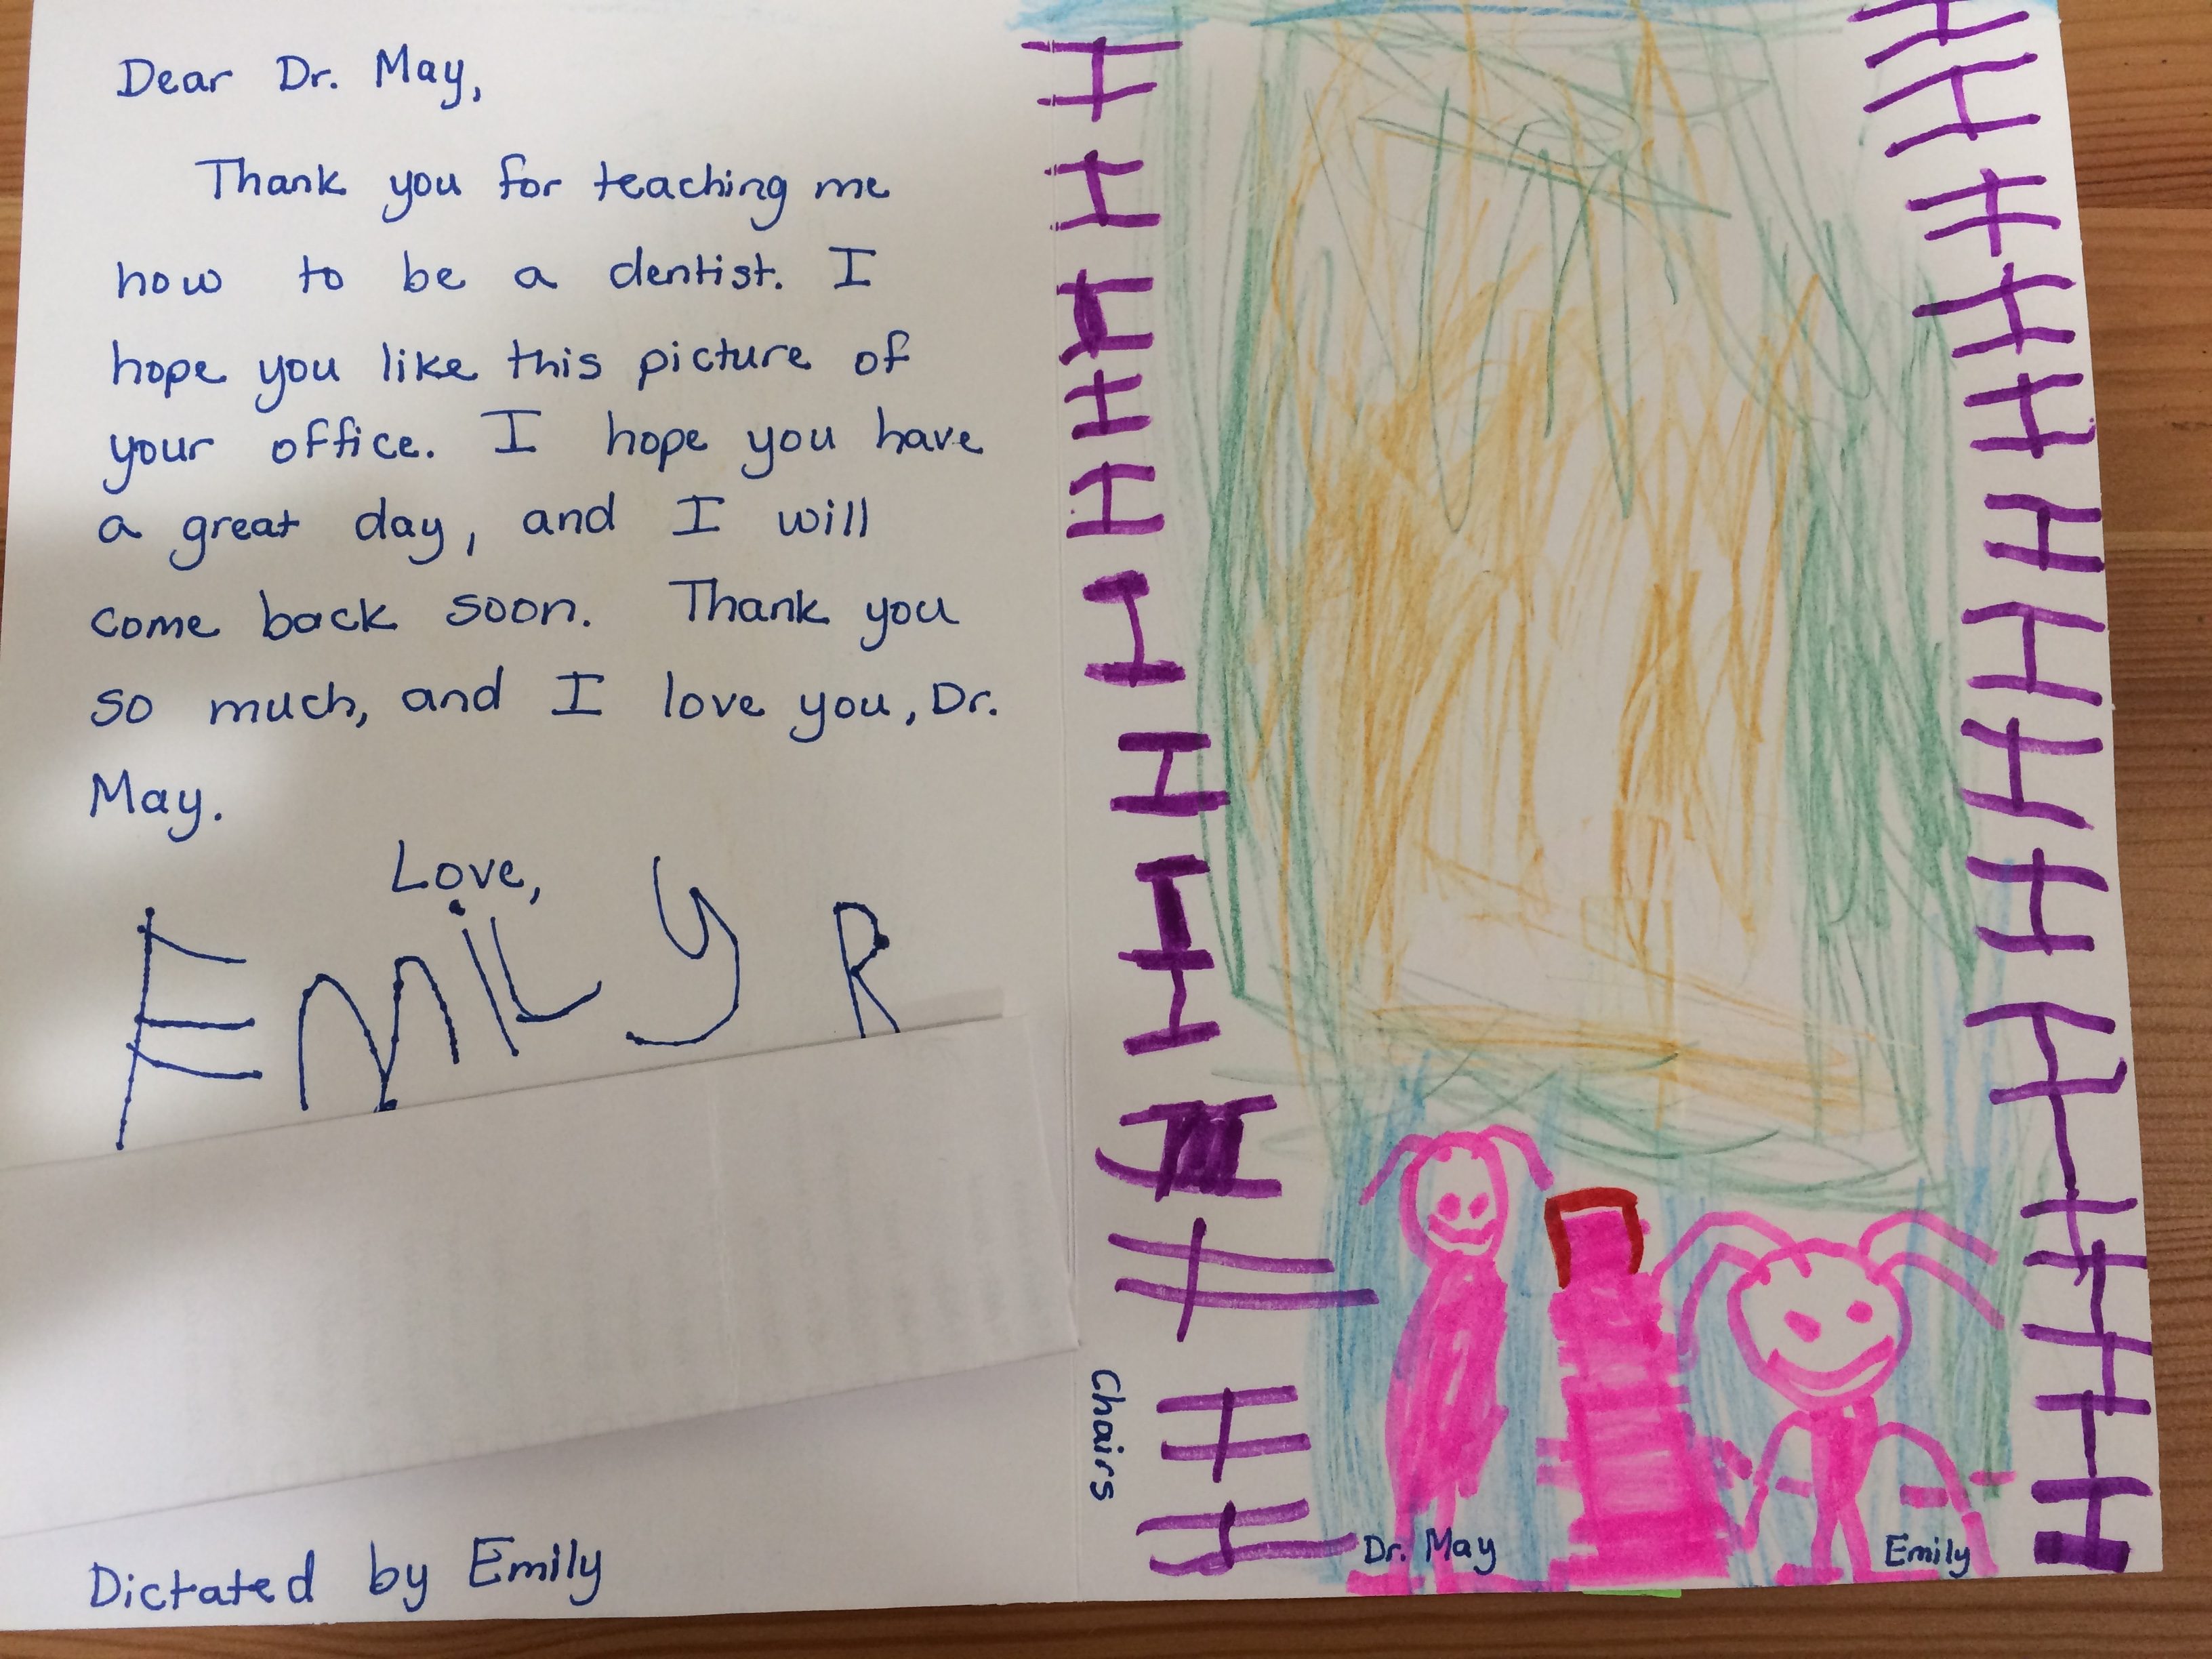 Dear Dr. May,
Thank you for teaching me
how to be a dentist. I
hope you like this picture of
your office. I hope you have
a great day, and I will
come back soon. Thank you
so much, and I love you, Dr.
May.
Love,
EMiLy R
Dictated by Emily
Chairs
Dr. May
Emily